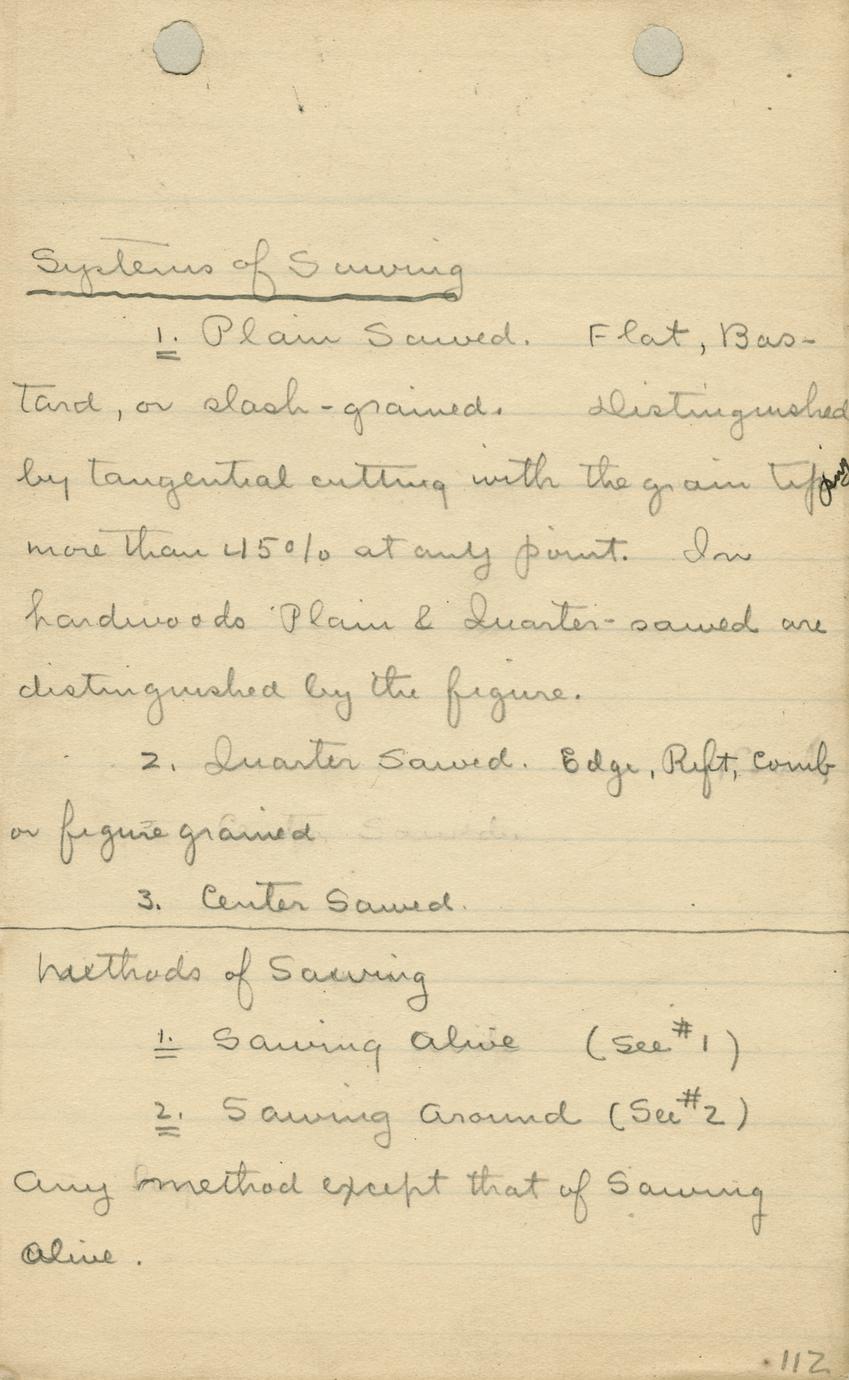 Systems of Sawing
1. Plain Sawed. Flat, Bas-
tard, or slash-grained. Distinguished
by tangential cutting with the grain tipping
more than 45% at any point. In
hardwoods Plain & Quarter-sawed are
distinguished by the figure.
2. Quarter Sawed. Edge, Rift, Comb
or figure grained
3. Center Sawed.
Methods of Sawing
1. Sawing Alive (See #1)
2. Sawing Around (See #2)
Any method except that of Sawing
Alive.
112